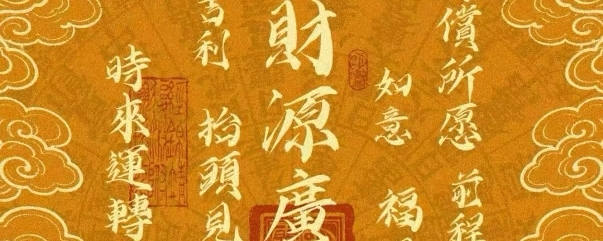 償所愿 前程
如意 福
財源廣
吉利 抬頭見
時來運轉